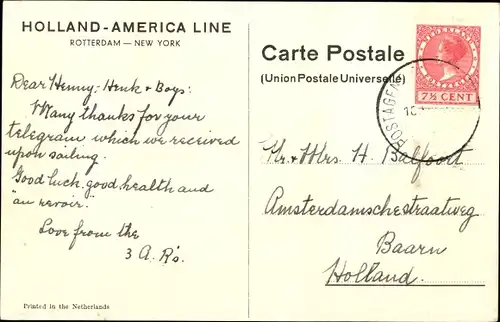 HOLLAND-AMERICA LINE
ROTTERDAM — NEW YORK
Dear Henny, Henk & Boys:
Many thanks for your
telegram which we received
upon sailing.
Good luck, good health and
"au revoir."
Love from the
3 A. R's.
Printed in the Netherlands
Carte Postale
(Union Postale Universelle)
NEDERLAND
7½ CENT
POSTAGEN
Mr. & Mrs. H. Balfoort
Amsterdamschestraatweg
Baarn
Holland.